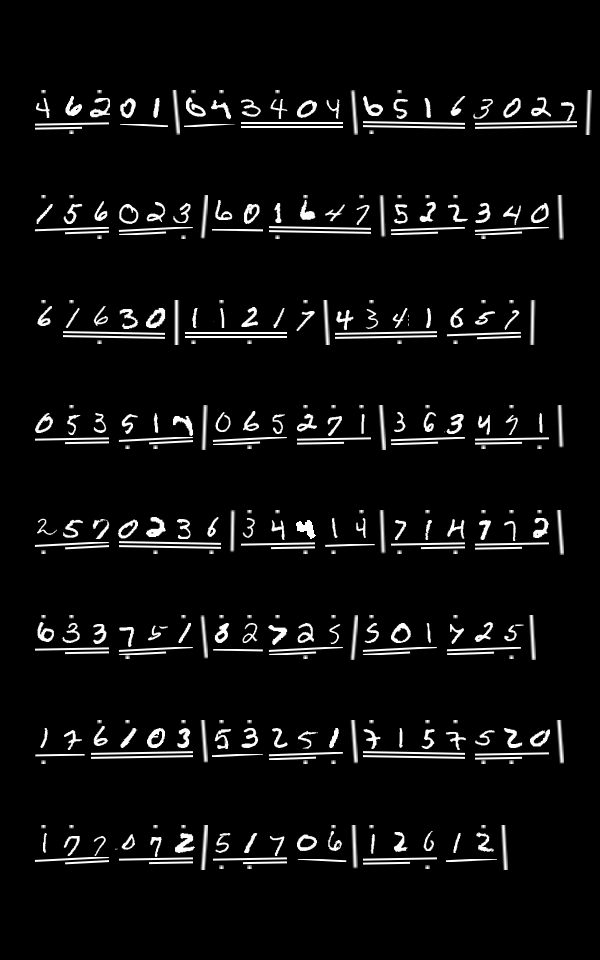 46201|643404|65163027|
156023|601647|532340|
61630|11217|4341657|
053517|065271|363471|
2570236|34414|7147772|
633751|82725|501725|
176103|53251|7157520|
177072|51706|12612|